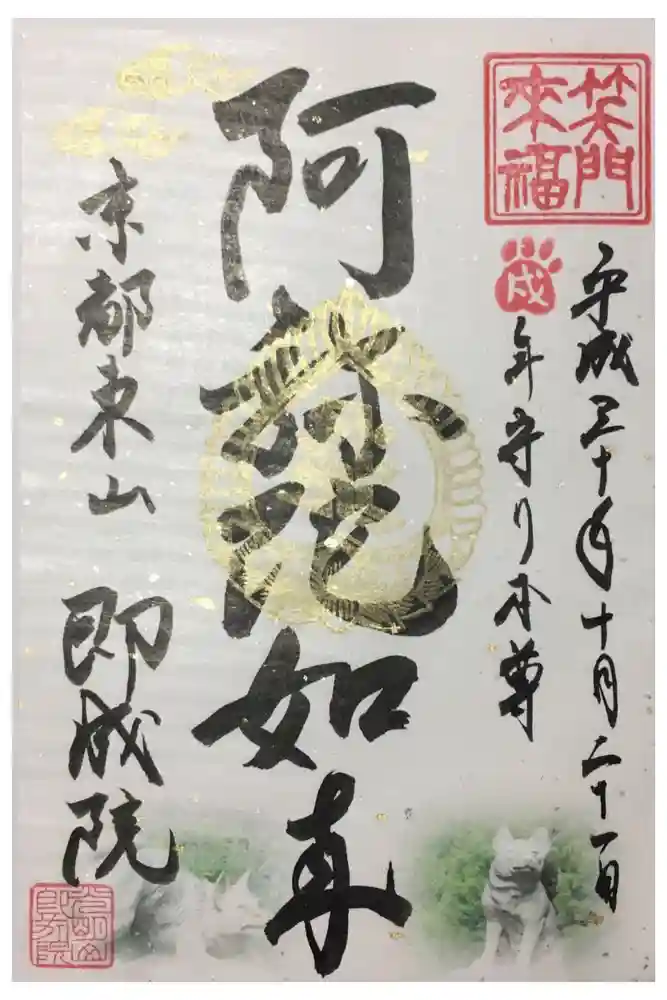 笑門
来福
平成三十年十月二十一日
戌年守り本尊
阿弥陀如来
京都東山
即成院